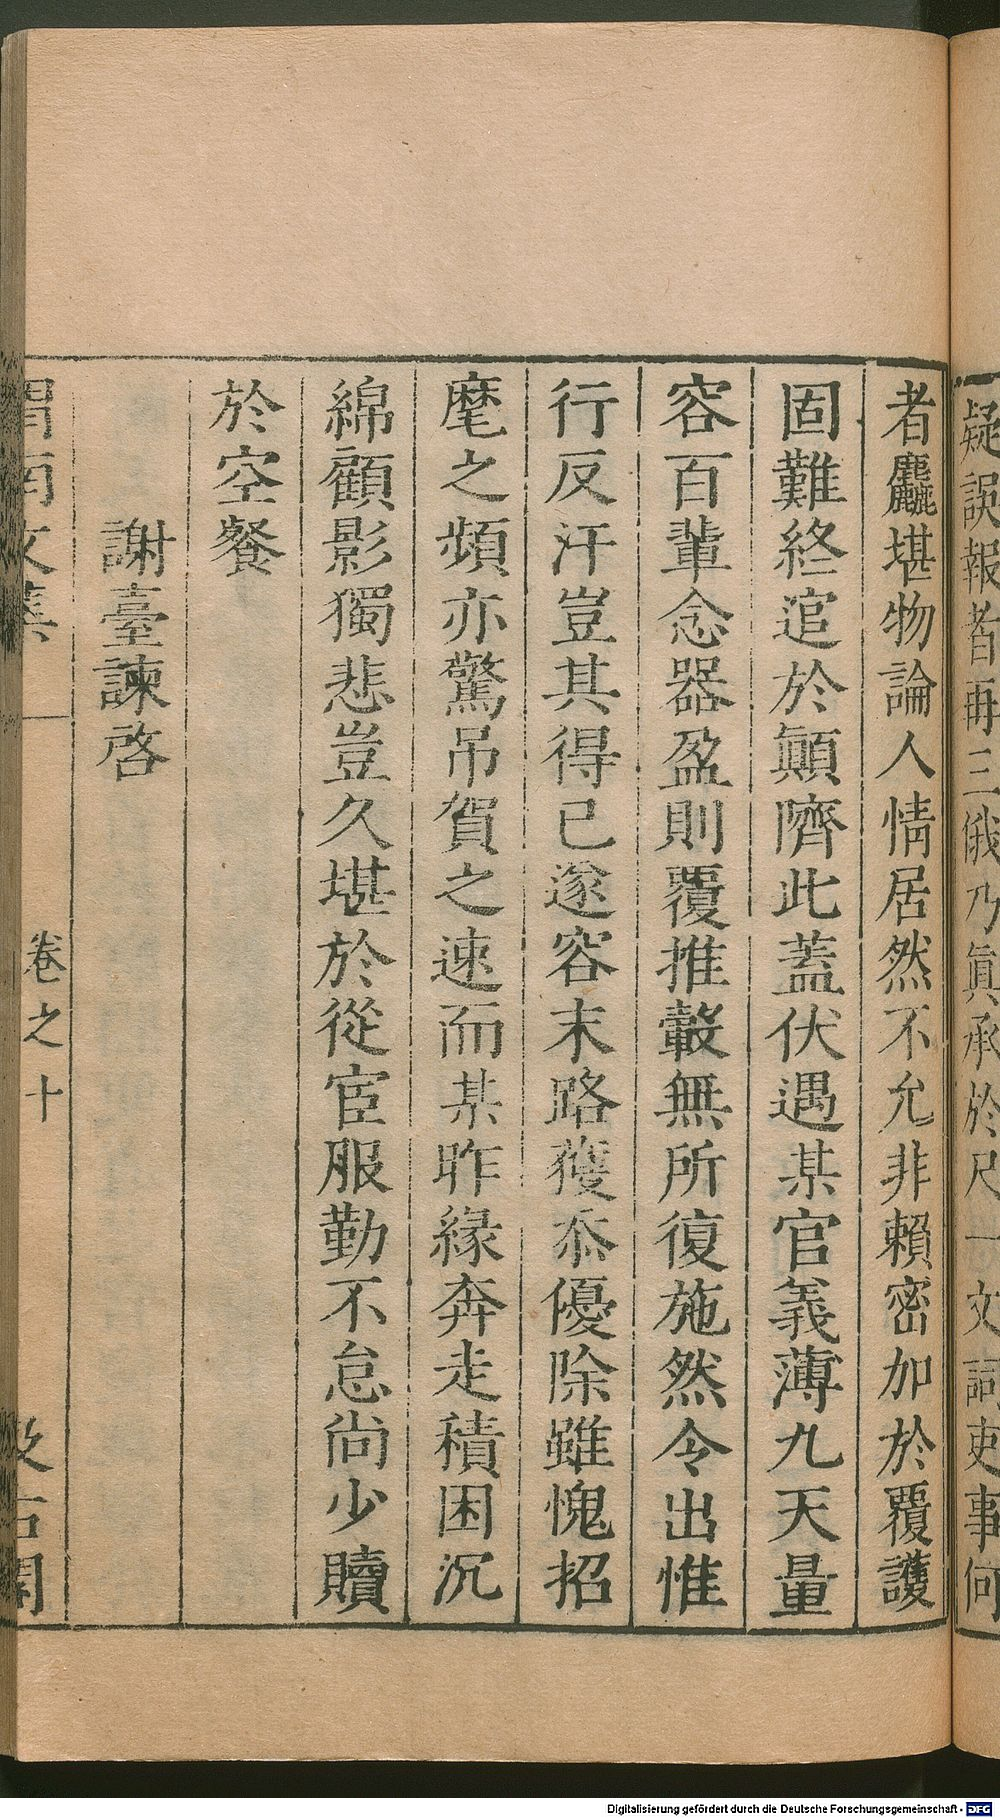 疑誤報者再三俄乃眞承於尺一文詞吏事何
者麤堪物論人情居然不允非賴密加於覆護
固難終逭於顚隮此蓋伏遇某官義薄九天量
容百輩念器盈則覆推轂無所復施然令出惟
行反汗豈其得已遂容末路獲忝優除雖愧招
麾之頻亦驚吊賀之速而某昨緣奔走積困沉
綿顧影獨悲豈久堪於從宦服勤不怠尚少贖
於空餐
謝臺諫啓
渭南文集 卷之十 汲古閣
Digitalisierung gefördert durch die Deutsche Forschungsgemeinschaft - DFG